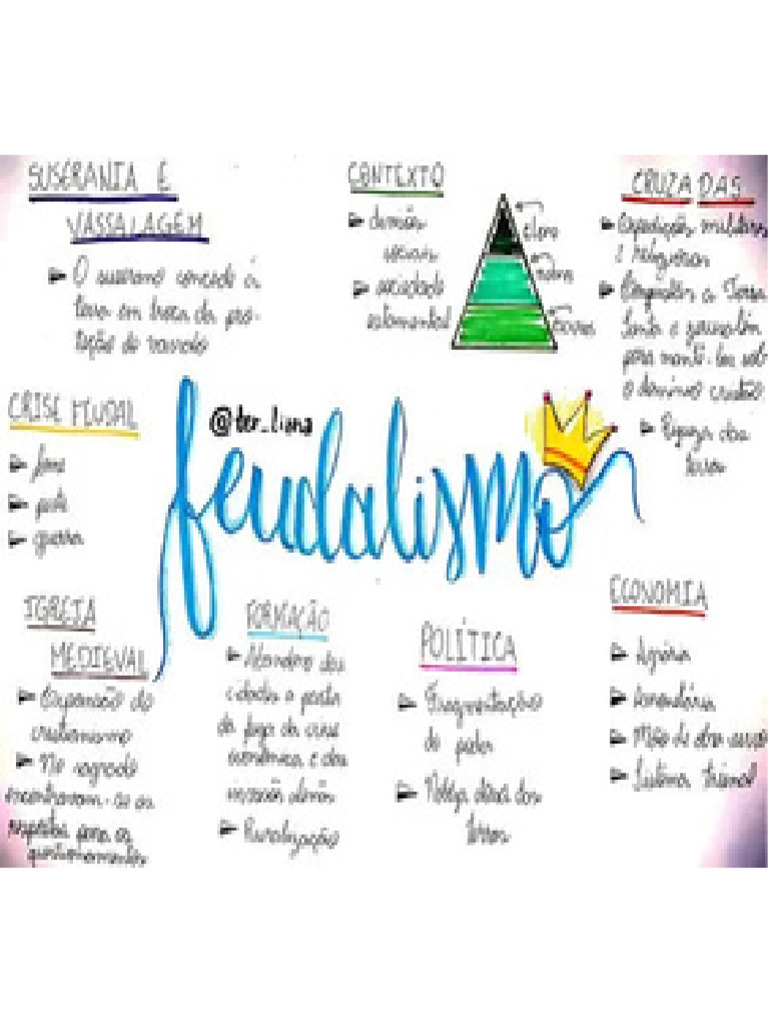 SUSERANIA E
VASSALAGEM
O suserano concede a
terra em troca da pro-
teção do vassalo
CONTEXTO
sociais
sociedade
estamental
clero
nobres
servos
CRUZADAS
Expedições militares
e religiosas
a Terra
Santa e Jerusalém
para mantê-las sob
o domínio cristão
Riqueza das
terras
CRISE FEUDAL
fome
peste
guerra
@ter_lima
feudalismo
IGREJA
MEDIEVAL
Expansão do
cristianismo
No sagrado
encontravam-se as
respostas para os
questionamentos
FORMAÇÃO
Abandono das
cidades a partir
da fuga da crise
econômica e das
invasões
Ruralização
POLÍTICA
Fragmentação
do poder
Nobreza das
terras
ECONOMIA
Agrária
Mão de obra
Sistema